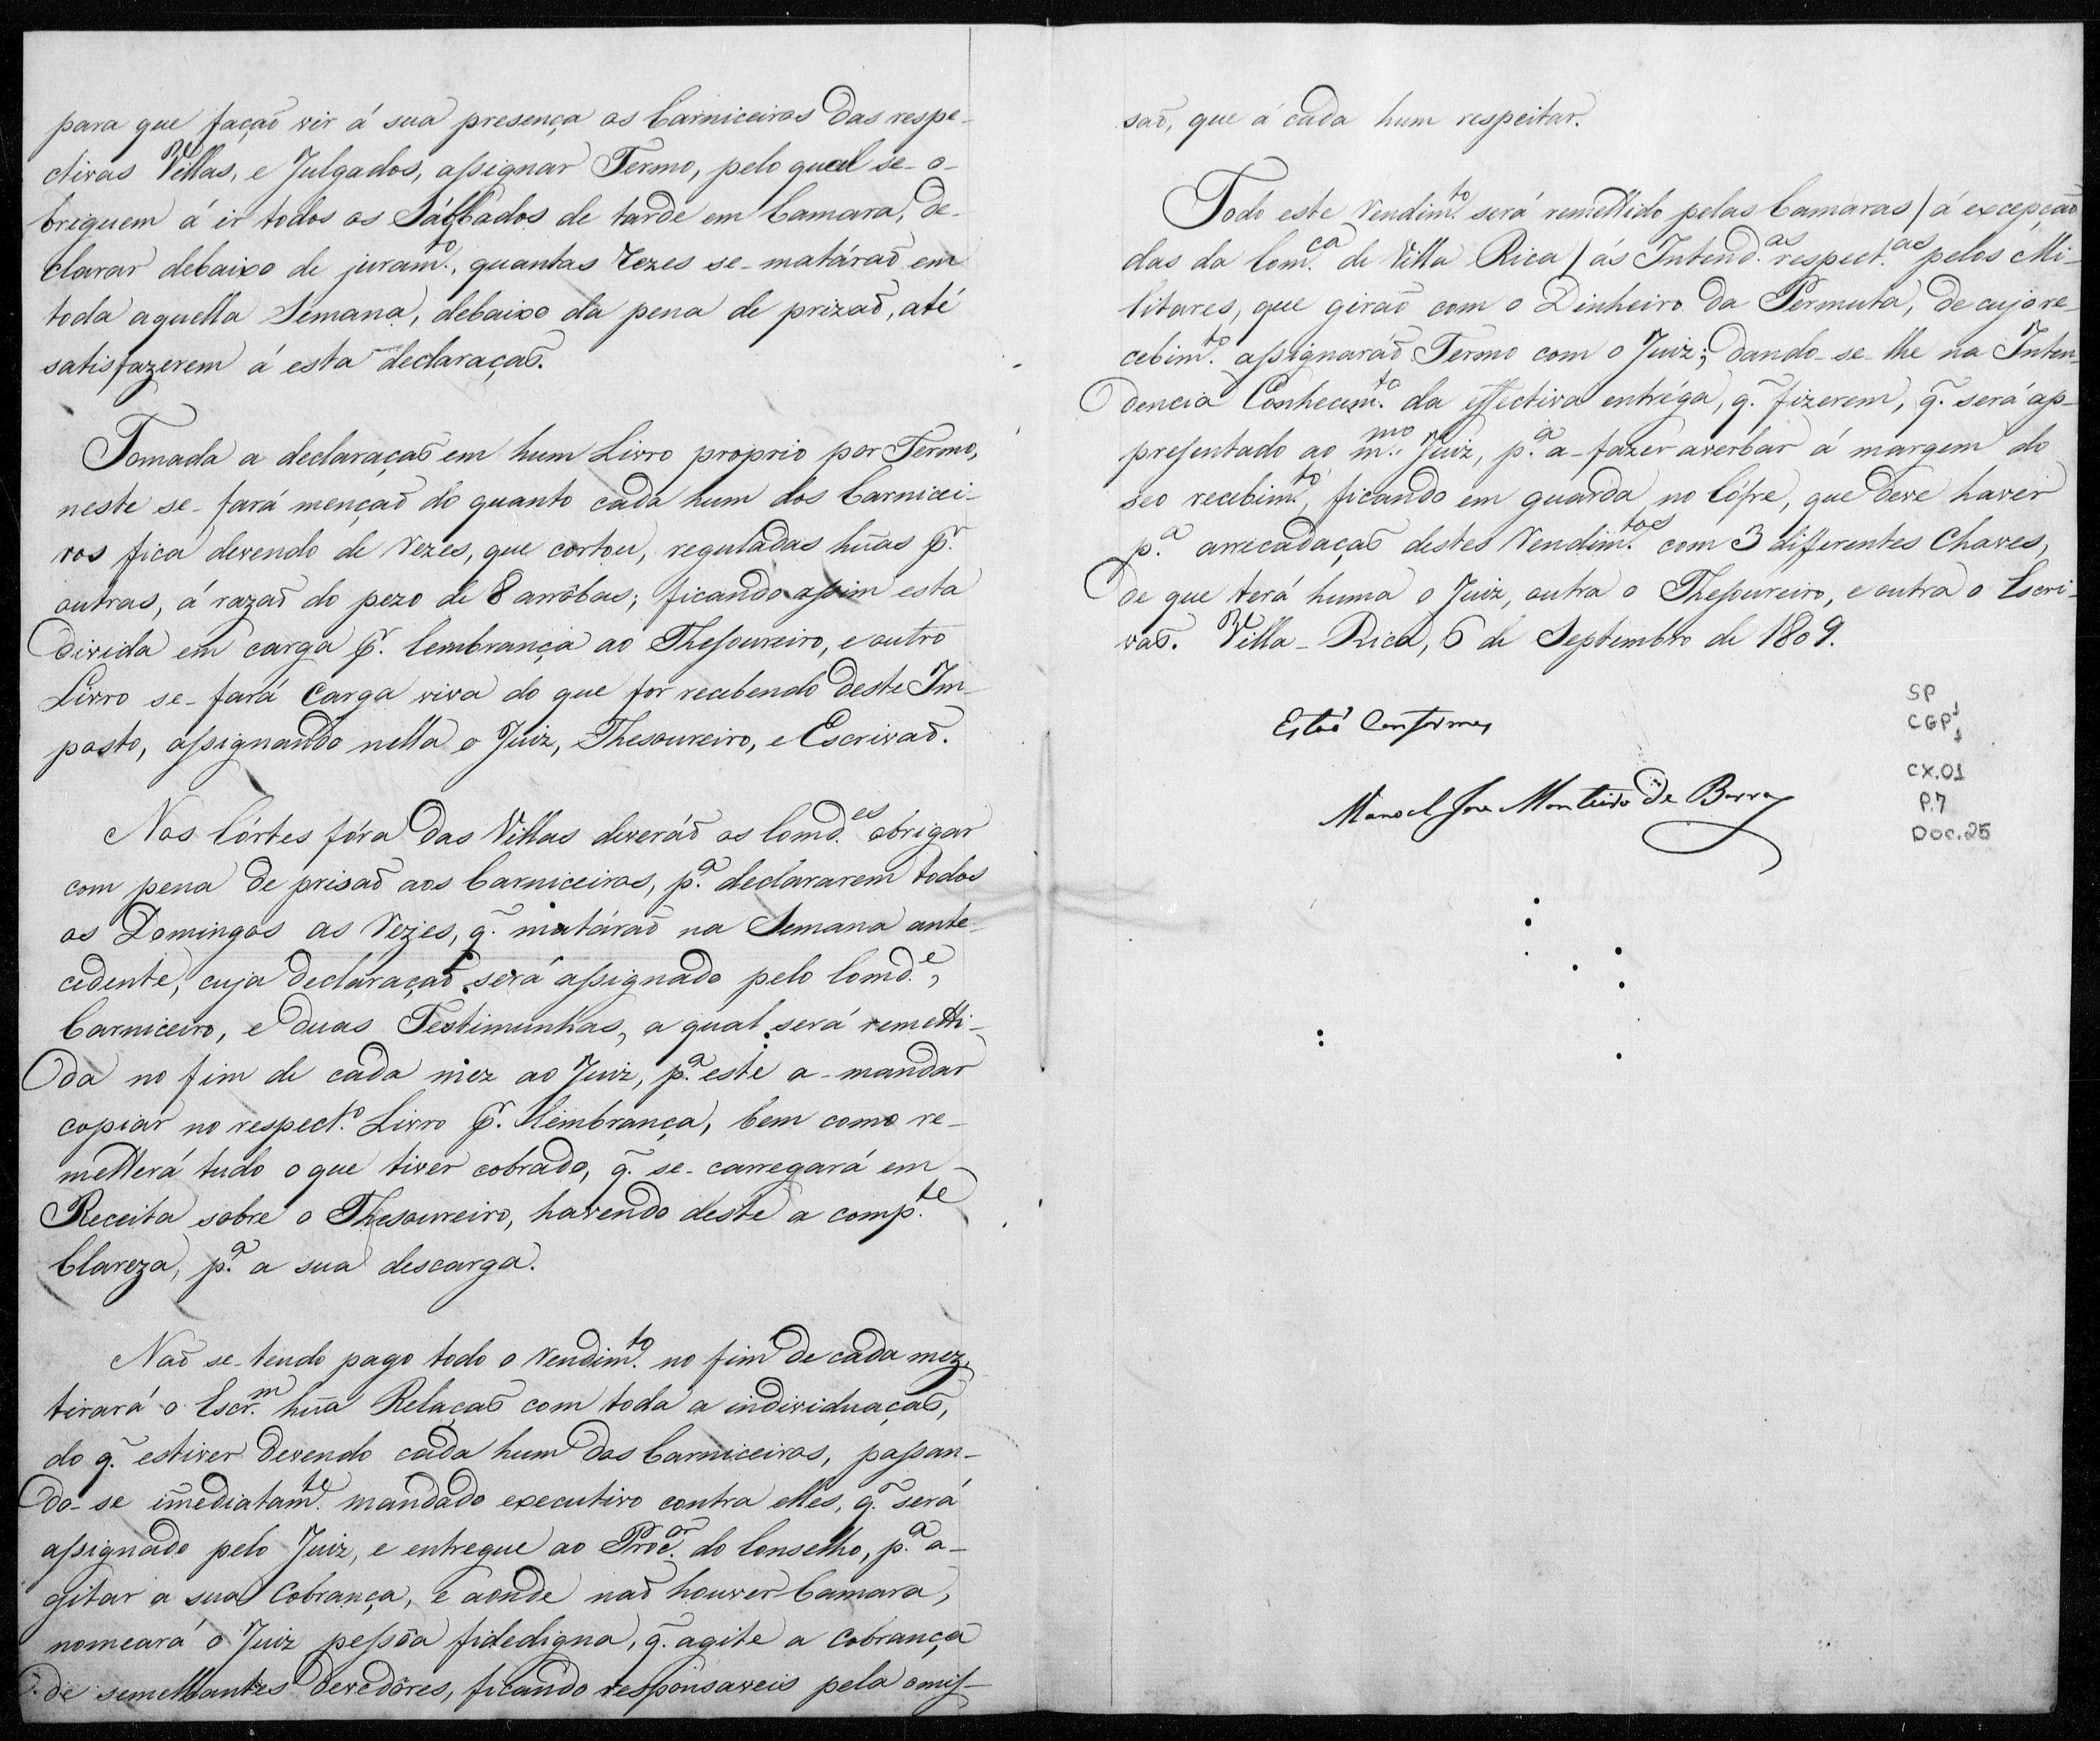 para que façaõ vir á sua presença os Carniceiros das respe-
ctivas Villas, e Julgados, assignar Termo, pelo qual se-o-
briguem á ir todos os Sábbados de tarde em Camara, de-
clarar debaixo de juram.to, quantas Rezes se-matáraõ em
toda aquella Semana, debaixo da pena de prizaõ, até
satisfazerem á esta declaraçaõ.
Tomada a declaraçaõ em hum Livro proprio por Termo,
neste se-fará mençaõ do quanto cada hum dos Carnicei-
ros fica devendo de Rezes, que cortou, reguladas hũas p.r
outras, á razaõ do pezo de 8 arrôbas; ficando assim esta
divida em carga p.r lembrança ao Thesoureiro, e outro
Livro se-fará Carga viva do que for recebendo deste Im-
posto, assignando nella o Juiz, Thesoureiro, e Escrivaõ.
Nos Córtes fóra das Villas deveráõ os Comd.es obrigar
com pena de prisaõ aos Carniceiros, p.a declararem todos
os Domingos as Rezes, q̃. matáraõ na Semana ante-
cedente, cuja declaraçaõ será assignado pelo Comd.e,
Carniceiro, e duas Testimunhas, a qual será remetti-
da no fim de cada mez ao Juiz, p.a este a-mandar
copiar no respect.o Livro p.r lembrança, bem como re-
metterá tudo o que tiver cobrado, q̃. se-carregará em
Receita sobre o Thesoureiro, havendo deste a comp.te
Clareza, p.a a sua descarga.
Naõ se-tendo pago todo o Rendim.to no fim de cada mez,
tirará o Escr.m hũa Relaçaõ com toda a individuaçaõ,
do q̃. estiver devendo cada hum dos Carniceiros, passan-
do-se im̃ediatam.te mandado executivo contra elles, q̃. será
assignado pelo Juiz, e entregue ao Proc.or do Conselho, p.a a-
gitar a sua Cobrança, e aonde naõ houver Camara,
nomeará o Juiz pessôa fidedigna, q̃. agite a Cobrança
de semelhantes devedôres, ficando responsaveis pela omis-
saõ, que á cada hum respeitar.
Todo este Rendim.to será remettido pelas Camaras / á excepçaõ
das da Com.ca de Villa Rica / ás Intend.as respect.as pelos Mi-
litares, que giraõ com o Dinheiro da Permuta, de cujo re-
cebim.to assignaráõ Termo com o Juiz; dando-se-lhe na Inten-
dencia Conhecim.to da effectiva entréga, q̃. fizerem, q̃. será ap-
presentado ao m.mo Juiz, p.a a-fazer averbar á margem do
seo recebim.to, ficando em guarda no Cófre, que deve haver
p.a arrecadaçaõ destes Rendim.tos com 3 differentes Chaves,
de que terá huma o Juiz, outra o Thesoureiro, e outra o Escri-
vaõ. Villa-Rica, 6 de Septembro de 1809.
Estaõ Conformes
Manoel Jose Monteiro de Barros
SP
CGP1
1
CX.01
P.7
DOC.25